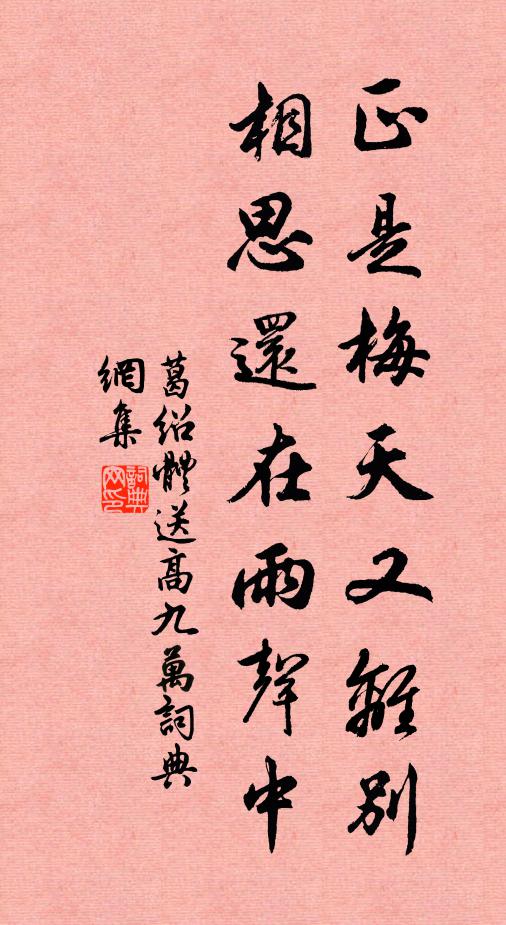 正是梅天又離別
相思還在雨聲中
葛绍體送高九萬詞典
網集
詞典
网印